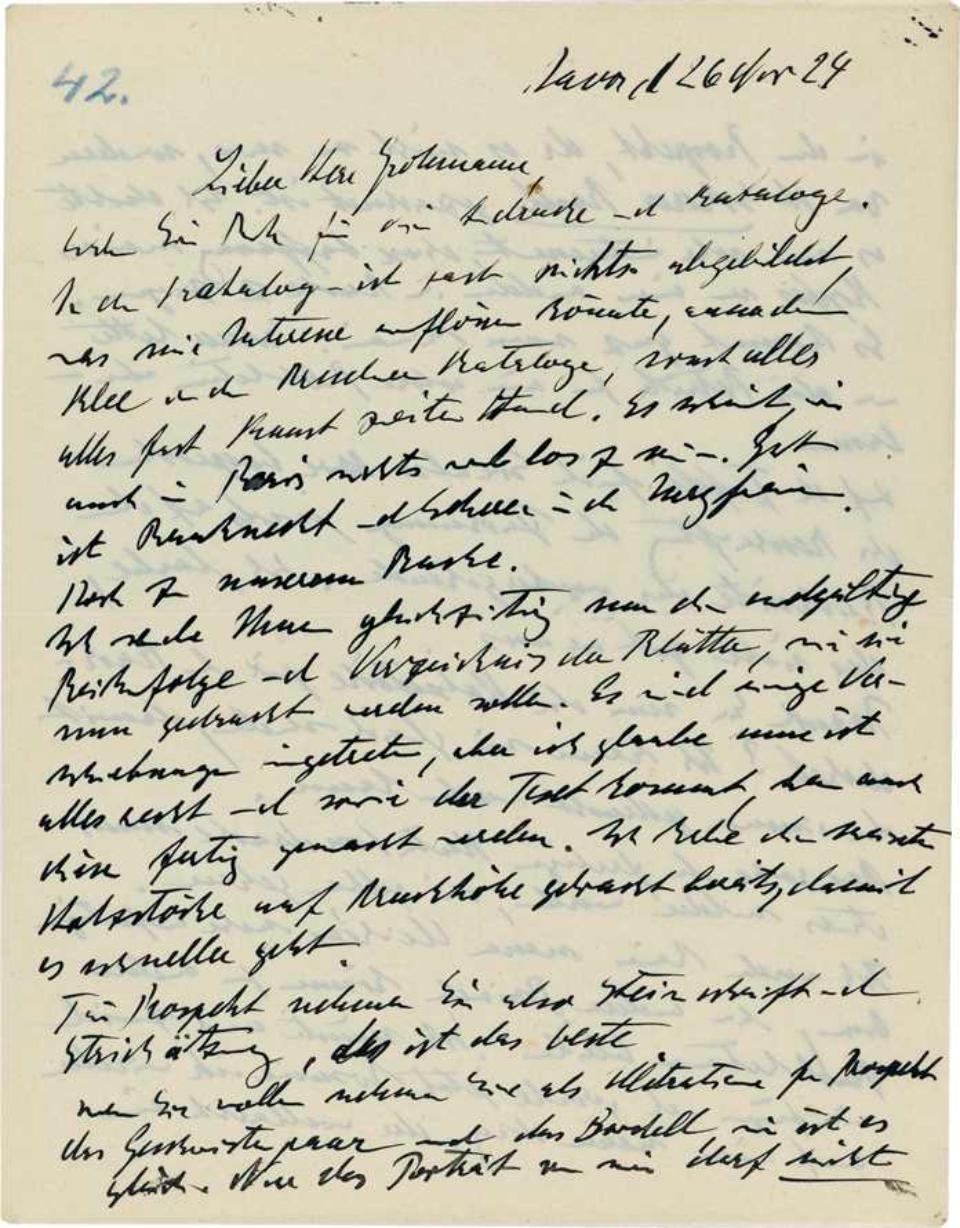 42.
Davos, d 26 Nov 24
Lieber Herr Grohmann,
Dank für die Andrucke und Kataloge.
In den Katalogen ist fast nichts abgebildet,
was mir Interesse einflösen könnte, ausnahm
Klee in den Kataloge, sonst alles
alles fast Kunst zweiter Hand. Es scheint, in
auch in Paris nichts viel los z sein. Jetzt
ist und in der
Doch z unserem Buche.
Ich sende Ihnen gleichzeitig nun die endgültige
Reihenfolge und Verzeichnis der Blätter, wie sie
nun gedruckt werden sollen. Es sind einige Ver-
schiebungen eingetreten, aber ich glaube nun ist
alles recht und sowie der Text kommt, kann auch
diese fertig gemacht werden. Ich habe die meisten
Holzstöcke auf Druckhöhe gebracht bereits, damit
es schneller geht.
Für Prospekt nehmen Sie also Steinschrift und
Strichätzung, das ist das beste
wen Sie wollen nehmen Sie als für Prospekt
das Geschwisterpaar und das Bordell, mir ist es
gleich. Nur das Porträt von mir darf nicht